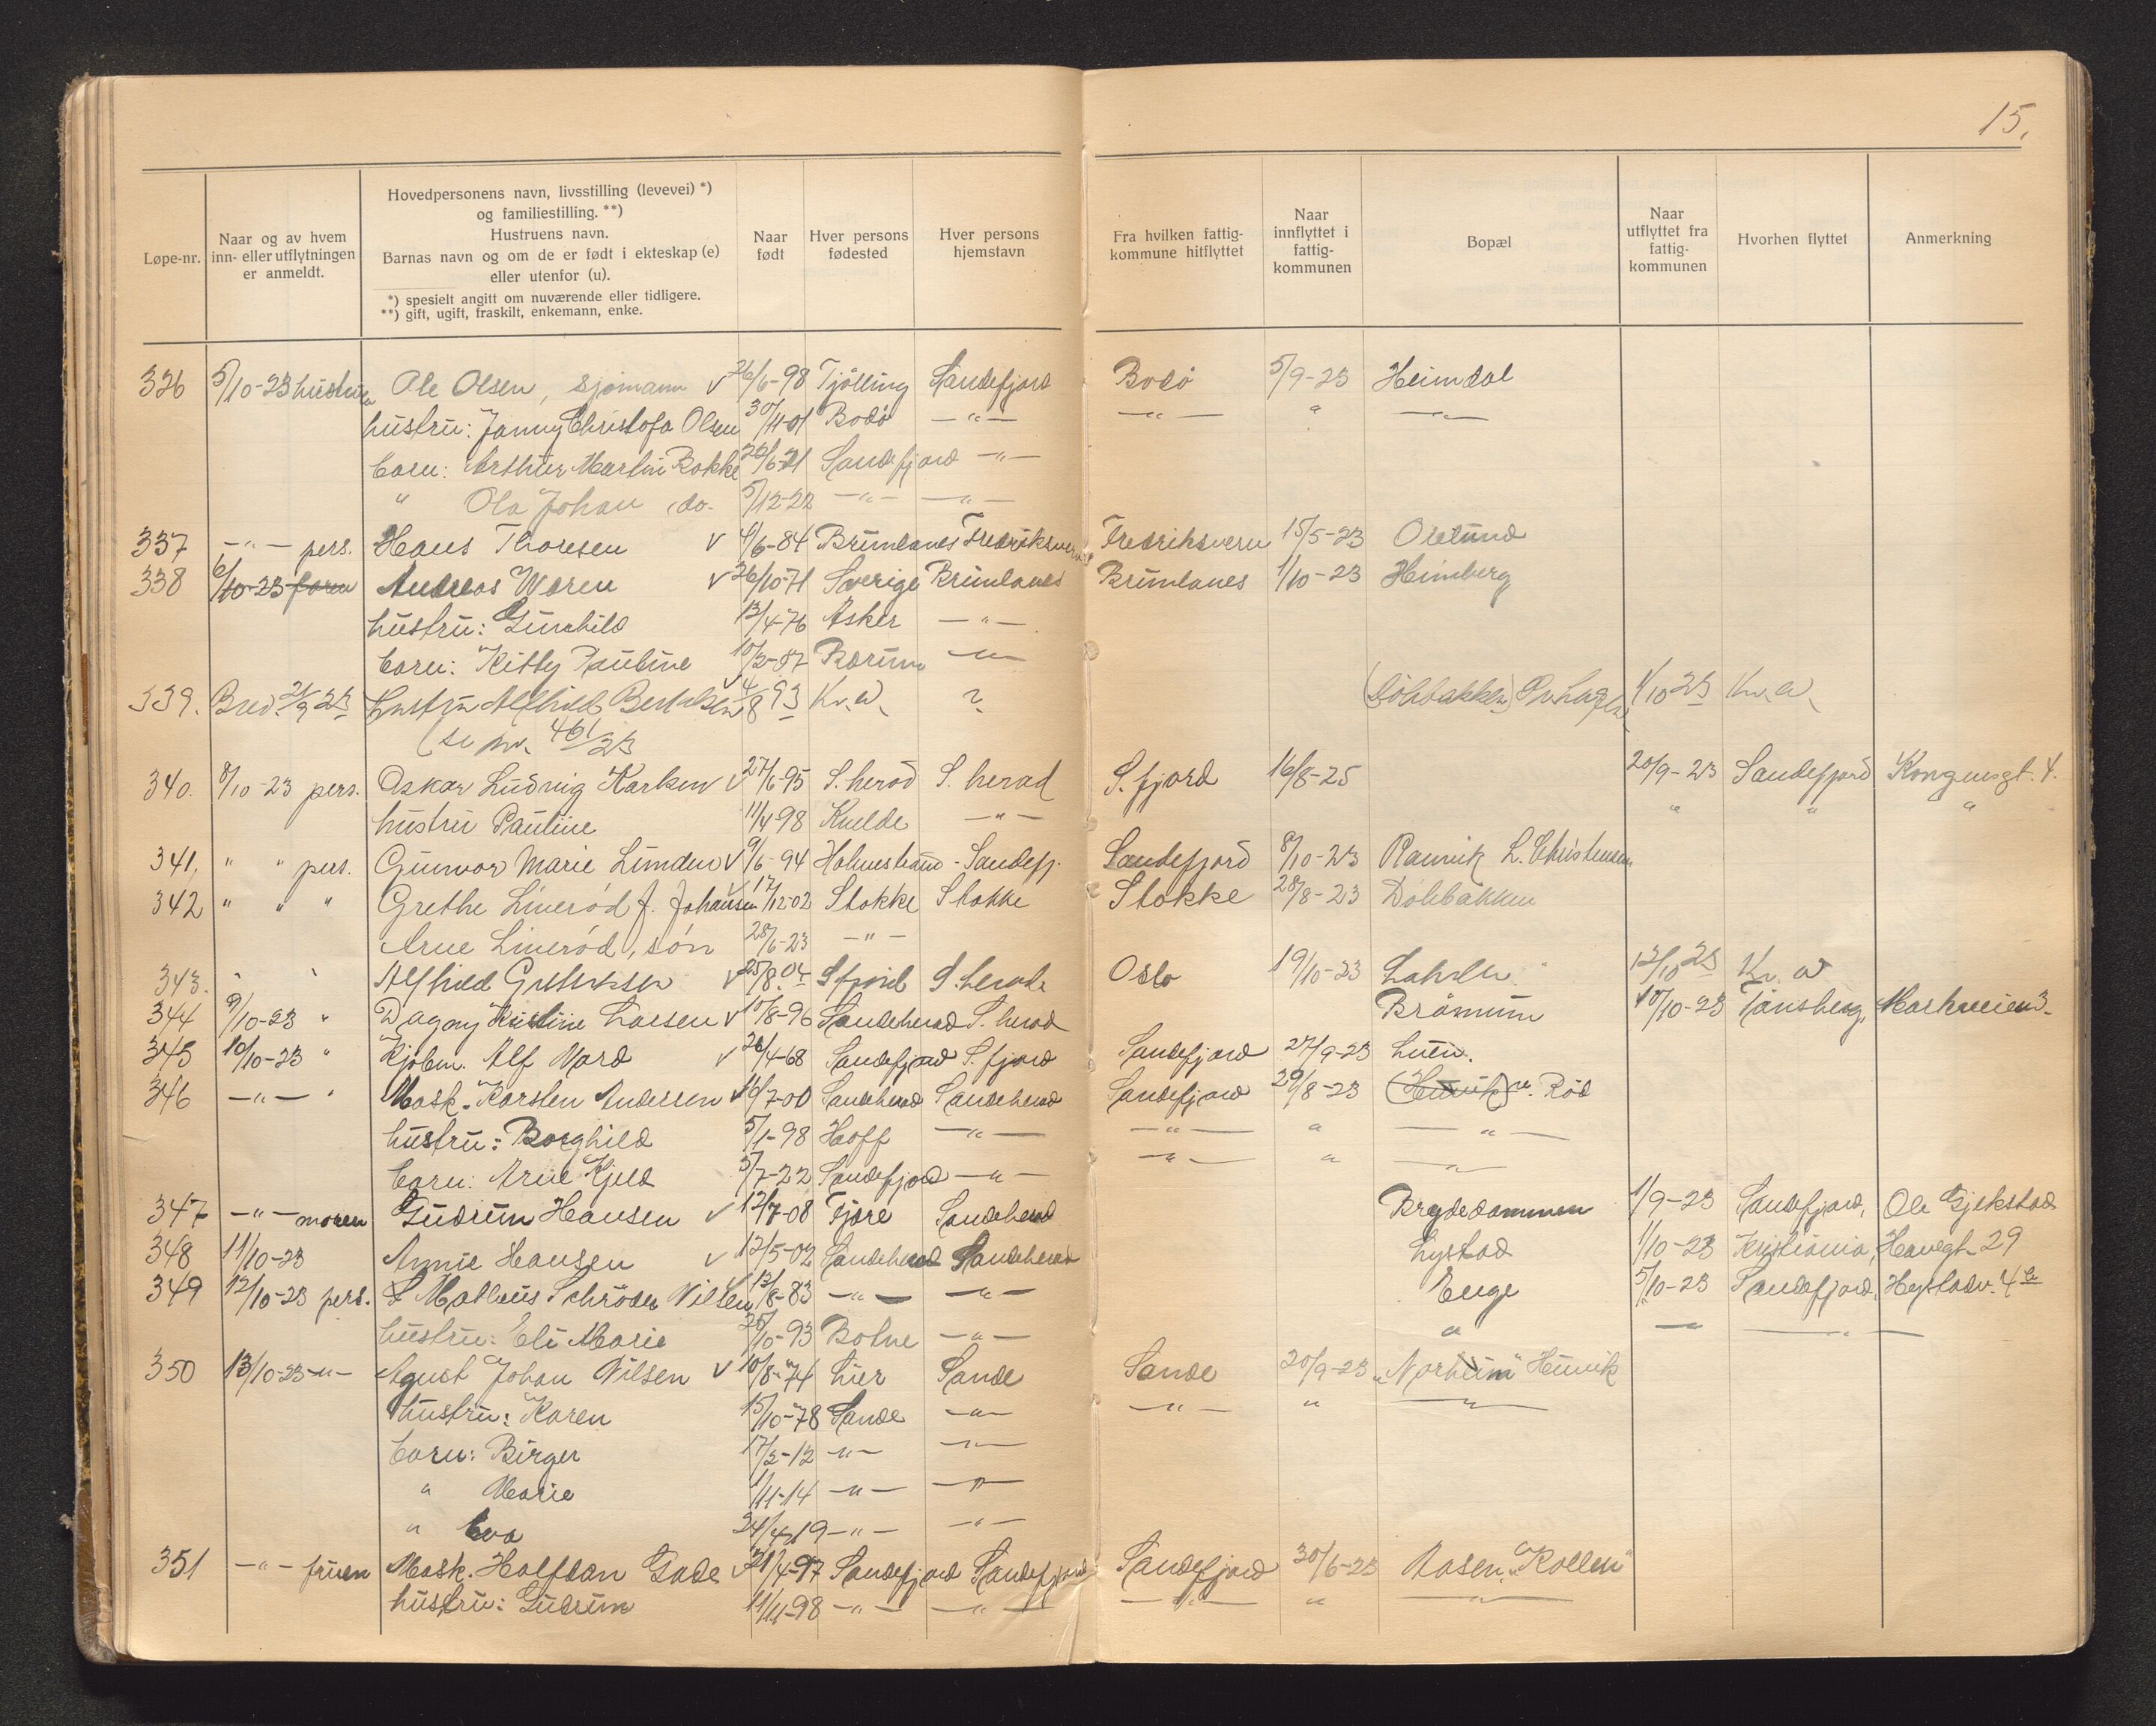 15.
Løpe-nr. | Naar og av hvem inn- eller utflytningen er anmeldt. | Hovedpersonens navn, livsstilling (levevei) *) og familiestilling. **) Hustruens navn. Barnas navn og om de er født i ekteskap (e) eller utenfor (u). *) spesielt angitt om nuværende eller tidligere. **) gift, ugift, fraskilt, enkemann, enke. | Naar født | Hver persons fødested | Hver persons hjemstavn | Fra hvilken fattig-kommune hitflyttet | Naar innflyttet i fattig-kommunen | Bopæl | Naar utflyttet fra fattig-kommunen | Hvorhen flyttet | Anmerkning
336 5/10-23 hustruen Ole Olsen, sjømann v 26/6-98 Tjölling Sandefjord Bodö 5/9-23 Heimdal
hustru: Jenny Christofa Olsen 30/11-01 Bodö -"- -"- " -"-
barn: Arthur Martin Bakke 26/6-21 Sandefjord -"-
" Ola Johan do. 5/12-22 -"- -"-
337 -"- pers. Hans Thoresen v 4/6-84 Brunlanes Fredriksvern Fredriksvern 15/5-23
338 6/10-23 faren Andreas Woren v 26/10-71 Sverige Brunlanes Brunlanes 1/10-23 Heimberg
hustru: Gunhild 13/4-76 Asker -"-
barn: Kitty Pauline 10/2-07 Bærum -"-
339. 21/9 23 4/8 93 Kr.a ? (Dölebakken) 1/10 23 Kr.a
(se nr. 461/23
340. 8/10-23 pers. Oskar Ludvig Karlsen v 27/6-95 S.herad S. herad S. fjord 16/8-25 20/9-23 Sandefjord Kongensgt. 4.
hustru Pauline 11/4-98 -"- " " "
341, " " pers. Gunvor Marie Lunden v 9/6-94 Holmestrand - Sandefj. Sandefjord 8/10-23 Ranvik L. Christensen
342 " " " Grethe Linerød f. Johansen 17/12-02 Stokke Stokke Stokke 28/8-23 Dölebakken
Arne Linerød, søn 28/6-23 -"-
343. " " Alfhild v 25/8.04 Sfjord S.herad Oslo 19/10-23 12/10 23 Kr. a
344 9/10-23 " Dagny Kristine Larsen v 10/8-96 Sandeherad S. herad Bråmum 10/10-23 Tønsberg, Markveien 3.
345 10/10-23 " Kjøbm. Alf Nord v 26/4-68 Sandefjord S. fjord Sandefjord 27/9-23 Lunn.
346 -"- " Mask. Karsten Andersen v 16/7-00 Sandeherad Sandeherad Sandefjord 29/8-23 (Hunvik) n. Röd
hustru: Borghild 5/1-98 Hoff -"- -"- " -"-
barn: Arne Kjeld 3/7-22 Sandefjord -"- -"- " -"-
347 -"- moren Gudrun Hansen v 12/7-08 Fjære Sandeherad Brydedammen 1/9-23 Sandefjord, Ole Gjekstad
348 11/10-23 Annie Hansen v 12/5-02 Sandeherad Sandeherad Lystad 1/10-23 Kristiania, Havegt. 29
349 12/10-23 pers. Mathæus Schröder Nilsen v 12/8-83 -"- -"- Enge 5/10-23 Sandefjord,
hustru: Eli Marie 25/10-93 Botne -"- " -"- -"-
350 13/10-23 -"- Agust Johan Nilsen v 10/8-74 Lier Sande Sande 20/9-23 "Norheim" Hunvik
hustru: Karen 15/10-78 Sande -"- -"- " -"-
barn: Birger 17/2-12 -"- -"-
" Marie 1/11-14 -"- -"-
" Eva 24/4-19 -"- -"-
351 -"- fruen Mask. Halfdan Gade v 21/4-97 Sandefjord Sandefjord Sandefjord 30/6-23 Åsen, "Kollen"
hustru: Gudrun 11/11-98 -"- -"- -"- " -"-